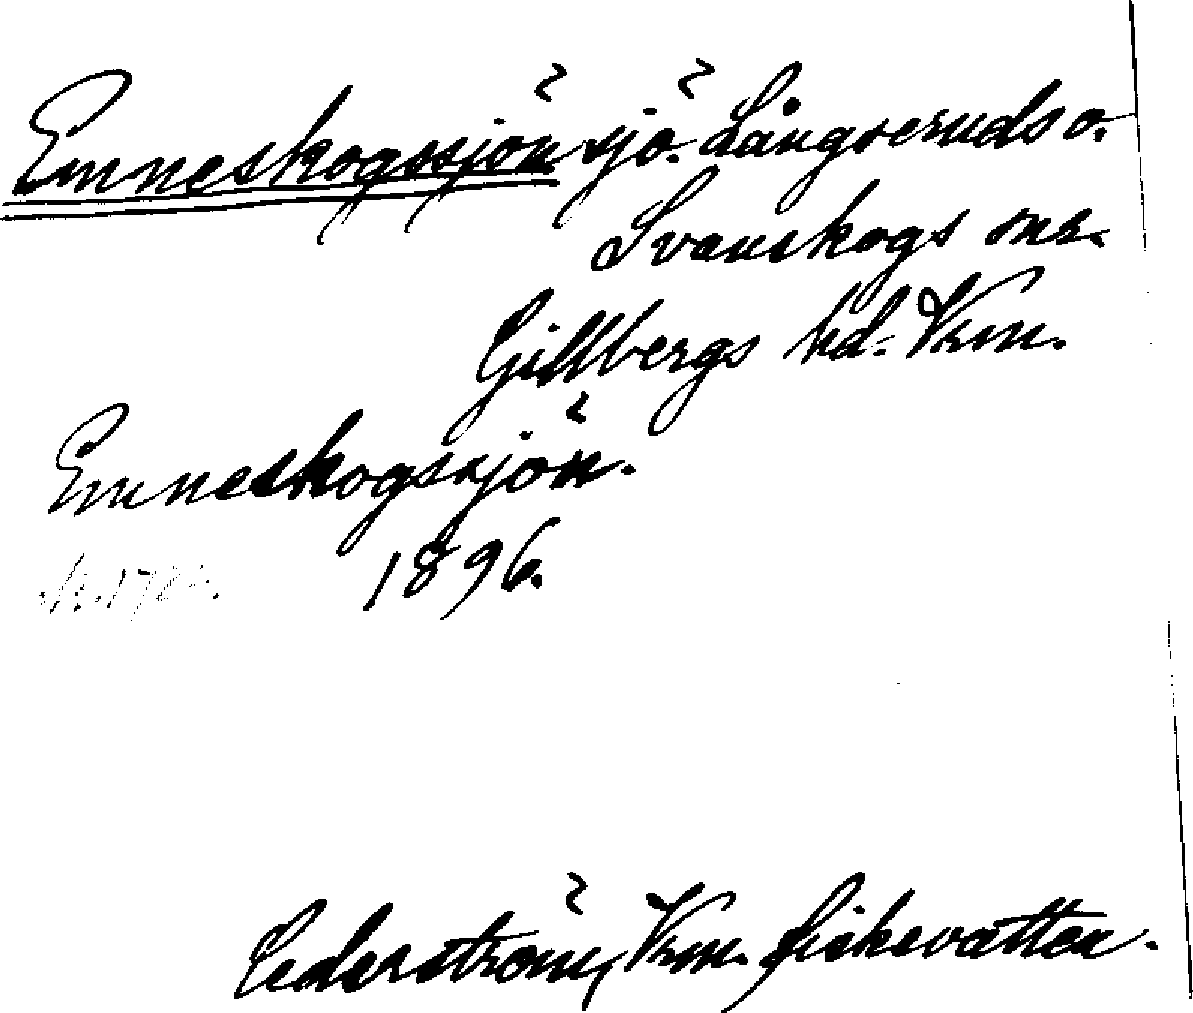 Emneskogssjön sjö. Långseruds o.
Svanskogs snr.
Gillbergs hd. Vrm.
Emneskogssjön.
1896.
Cederström, Vrm. fiskevatten.